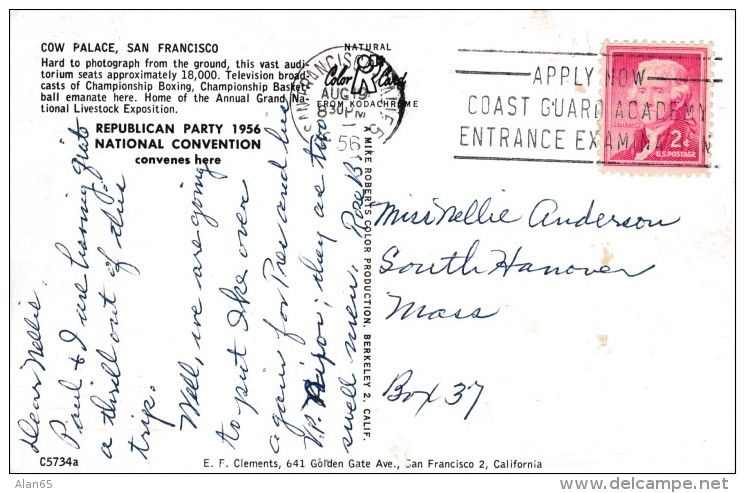 COW PALACE, SAN FRANCISCO
Hard to photograph from the ground, this vast audi-
torium seats approximately 18,000. Television broad-
casts of Championship Boxing, Championship Basket-
ball emanate here. Home of the Annual Grand Na-
tional Livestock Exposition.
REPUBLICAN PARTY 1956
NATIONAL CONVENTION
convenes here
NATURAL
Color Card
FROM KODACHROME
SAN FRANCISCO
AUG 19
830 PM
56
APPLY NOW
COAST GUARD ACADEMY
ENTRANCE EXAMINATION
2¢
U.S. POSTAGE
Dear Nellie.
Paul & I are having quite
a thrill out of this
trip.
Well, we are going
to put Ike over
again for Pres and
V.P. they as two
swell men. Rose B
A MIKE ROBERTS COLOR PRODUCTION, BERKELEY 2, CALIF.
Miss Nellie Anderson
South Hanover
Mass
Box 37
C5734a
E. F. Clements, 641 Golden Gate Ave., San Francisco 2, California
Alan65
www.delcampe.net